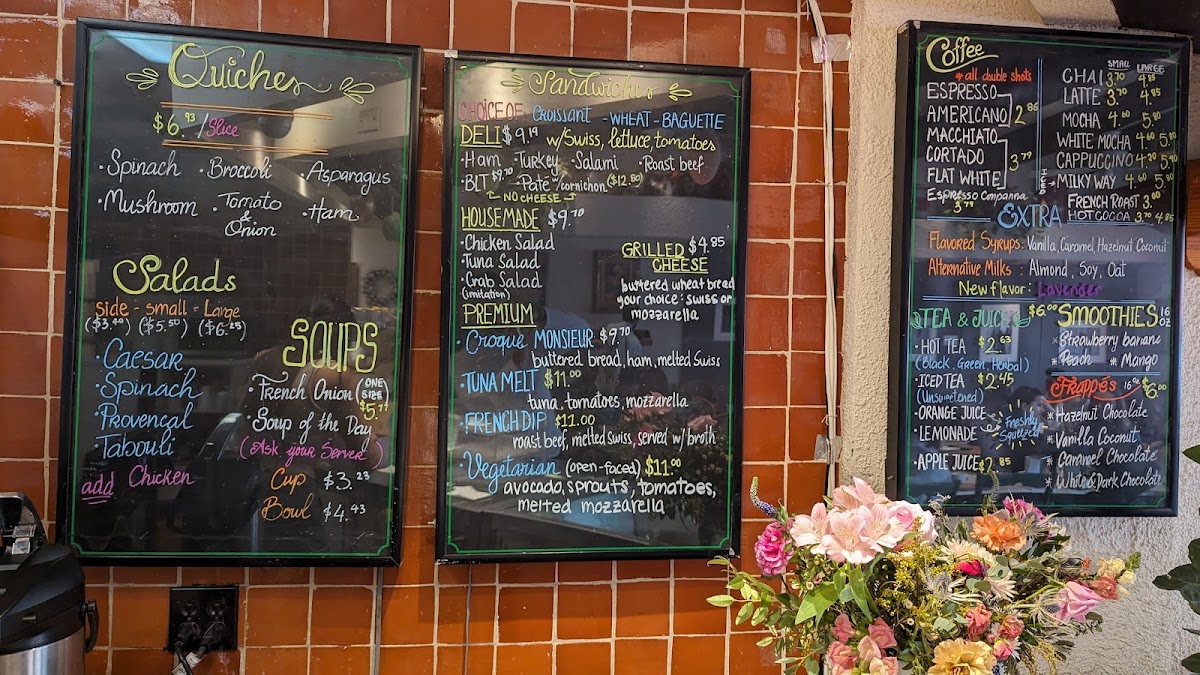 Quiches
$6.93/Slice
·Spinach ·Broccoli ·Asparagus
·Mushroom ·Tomato & Onion ·Ham
Salads
side - small - Large
($3.40) ($5.50) ($6.25)
·Caesar
·Spinach
·Provençal
Tabouli
add Chicken
SOUPS
·French Onion (ONE SIZE)
·Soup of the Day
(Ask your Server)
Cup $3.23
Bowl $4.43
Sandwiches
CHOICE OF Croissant - WHEAT - BAGUETTE
DELI $9.19 w/Swiss, lettuce, tomatoes
·Ham ·Turkey ·Salami ·Roast beef
·BLT $9.70 ·Pate/cornichon ($12.80)
NO CHEESE
HOUSEMADE $9.70
·Chicken Salad
·Tuna Salad
·Crab Salad
(imitation)
GRILLED $4.85
CHEESE
buttered wheat bread
your choice: swiss or
mozzarella
PREMIUM
·Croque MONSIEUR $9.70
buttered bread, ham, melted Swiss
·TUNA MELT $11.00
tuna, tomatoes, mozzarella
·FRENCH DIP $11.00
roast beef, melted swiss, served w/ broth
·Vegetarian (open-faced) $11.00
avocado, sprouts, tomatoes,
melted mozzarella
Coffee
*all double shots
ESPRESSO
AMERICANO 2.86
MACCHIATO
CORTADO 3.79
FLAT WHITE
Espresso Companna
3.79
SMALL LARGE
CHAI 3.70 4.85
LATTE 3.70 4.85
MOCHA 4.60 5.90
WHITE MOCHA 4.60
CAPPUCCINO 4.30
MILKY WAY 4.60
FRENCH ROAST 3.00
HOT COCOA 3.70 4.85
EXTRA
Flavored Syrups: Vanilla, Caramel, Hazelnut, Coconut
Alternative Milks : Almond, Soy, Oat
New flavor: Lavender
TEA & JUICE
·HOT TEA $2.63
(Black, Green, Herbal)
·ICED TEA $2.45
(Unsweetened)
·ORANGE JUICE
·LEMONADE
Freshly Squeezed
·APPLE JUICE 2.85
$6.00 SMOOTHIES 16 oz
*Strawberry banana
*Peach *Mango
Frappés 16oz $6.00
*Hazelnut Chocolate
*Vanilla Coconut
*Caramel Chocolate
*White & Dark Chocolate